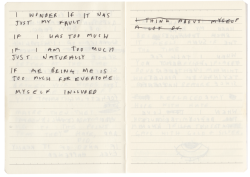 I WONDER IF IT WAS
JUST MY FAULT
IF I WAS TOO MUCH
IF I AM TOO MUCH
JUST NATURALLY
IF ME BEING ME IS
TOO MUCH FOR EVERYONE
MYSELF INCLUDED
I THINK ABOUT MYSELF
A LOT OF